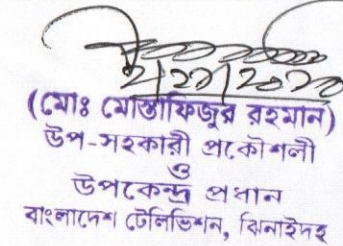 (মোঃ মোস্তাফিজুর রহমান)
উপ-সহকারী প্রকৌশলী
ও
উপকেন্দ্র প্রধান
বাংলাদেশ টেলিভিশন, ঝিনাইদহ